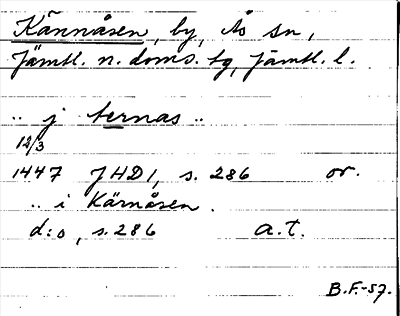 Kännåsen, by, Ås sn,
Jämtl. n. doms. tg, Jämtl. l.
.. j ternas ..
12/3
1447 JHD1, s. 286 or.
.. i Kärnåsen.
d:o, s. 286 a.t.
B.F.-57.